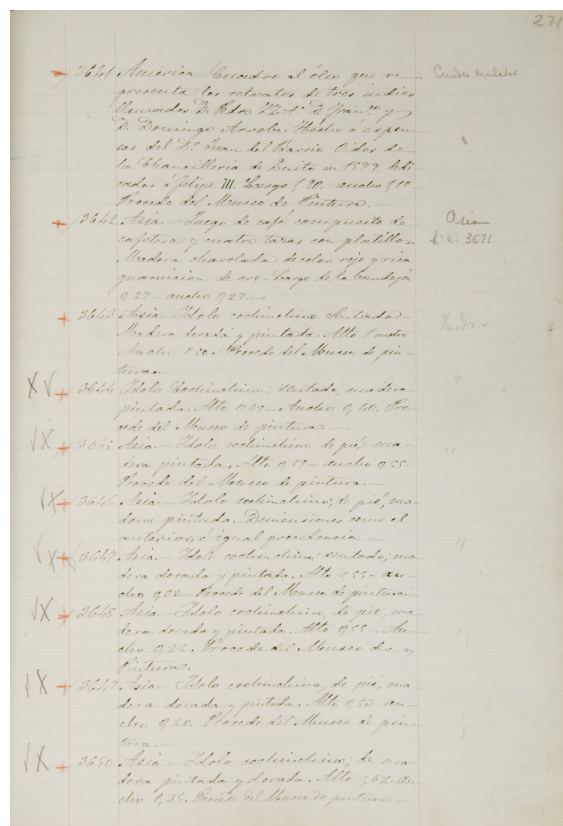 271
3641 América Cuadro al óleo que re
presenta los retratos de tres indios
llamados D. Pedro D. Fran.co y
D. Domingo Arrobe. Hecho á espen
sas del D.r Juan del Barrio Oidor de
la Chancilleria de Quito en 1599, dedi
cados á felipe III. Largo 1'20 - ancho 1'10
Procede del Museo de Pintura.
Cuadro mulatos
3642 Asia - Juego de café compuesto de
cafetera y cuatro tazas con platillos
Madera charolada de color rojo y rica
guarnicion de oro. Largo de la bandeja
0,27 - ancho 0,27.
Asia
3671
3643 Asia - Idolo cochinchino. Sentado
Madera dorada y pintada. Alto 1 metro
Ancho 0'50. Procede del Museo de pin
turas
India
3644 Idolo Cochinchino: sentado, madera
pintada. Alto Ancho 0,40. Pro
cede del Museo de pintura
"
3645 Asia - Idolo cochinchino de pié, ma
dera pintada. Alto 0,59 - ancho 0,55.
Procede del Museo de pintura.
"
3646 Asia - Idolo cochinchino; de pié, ma
dera pintada. Dimensiones como el
anterior, é igual procedencia.
3647 Asia - Idolo cochinchino; sentado; ma
dera dorada y pintada. Alto 0,55 - an
cho Procede del Museo de pintura
"
3648 Asia - Idolo cochinchino, de pie, ma
dera dorada y pintada. Alto 0,55 - An
cho 0,22. Procede del Museo de
Pintura.
"
3649 Asia - Idolo cochinchino, de pié, ma
dera dorada y pintada. Alto 0,50 - an
cho 0,20. Procede del Museo de pin
tura.
3650 Asia - Idolo cochinchino; de ma
dera pintada y dorada. Alto 0,62 - an
cho 0,25. Procede del Museo de pintura